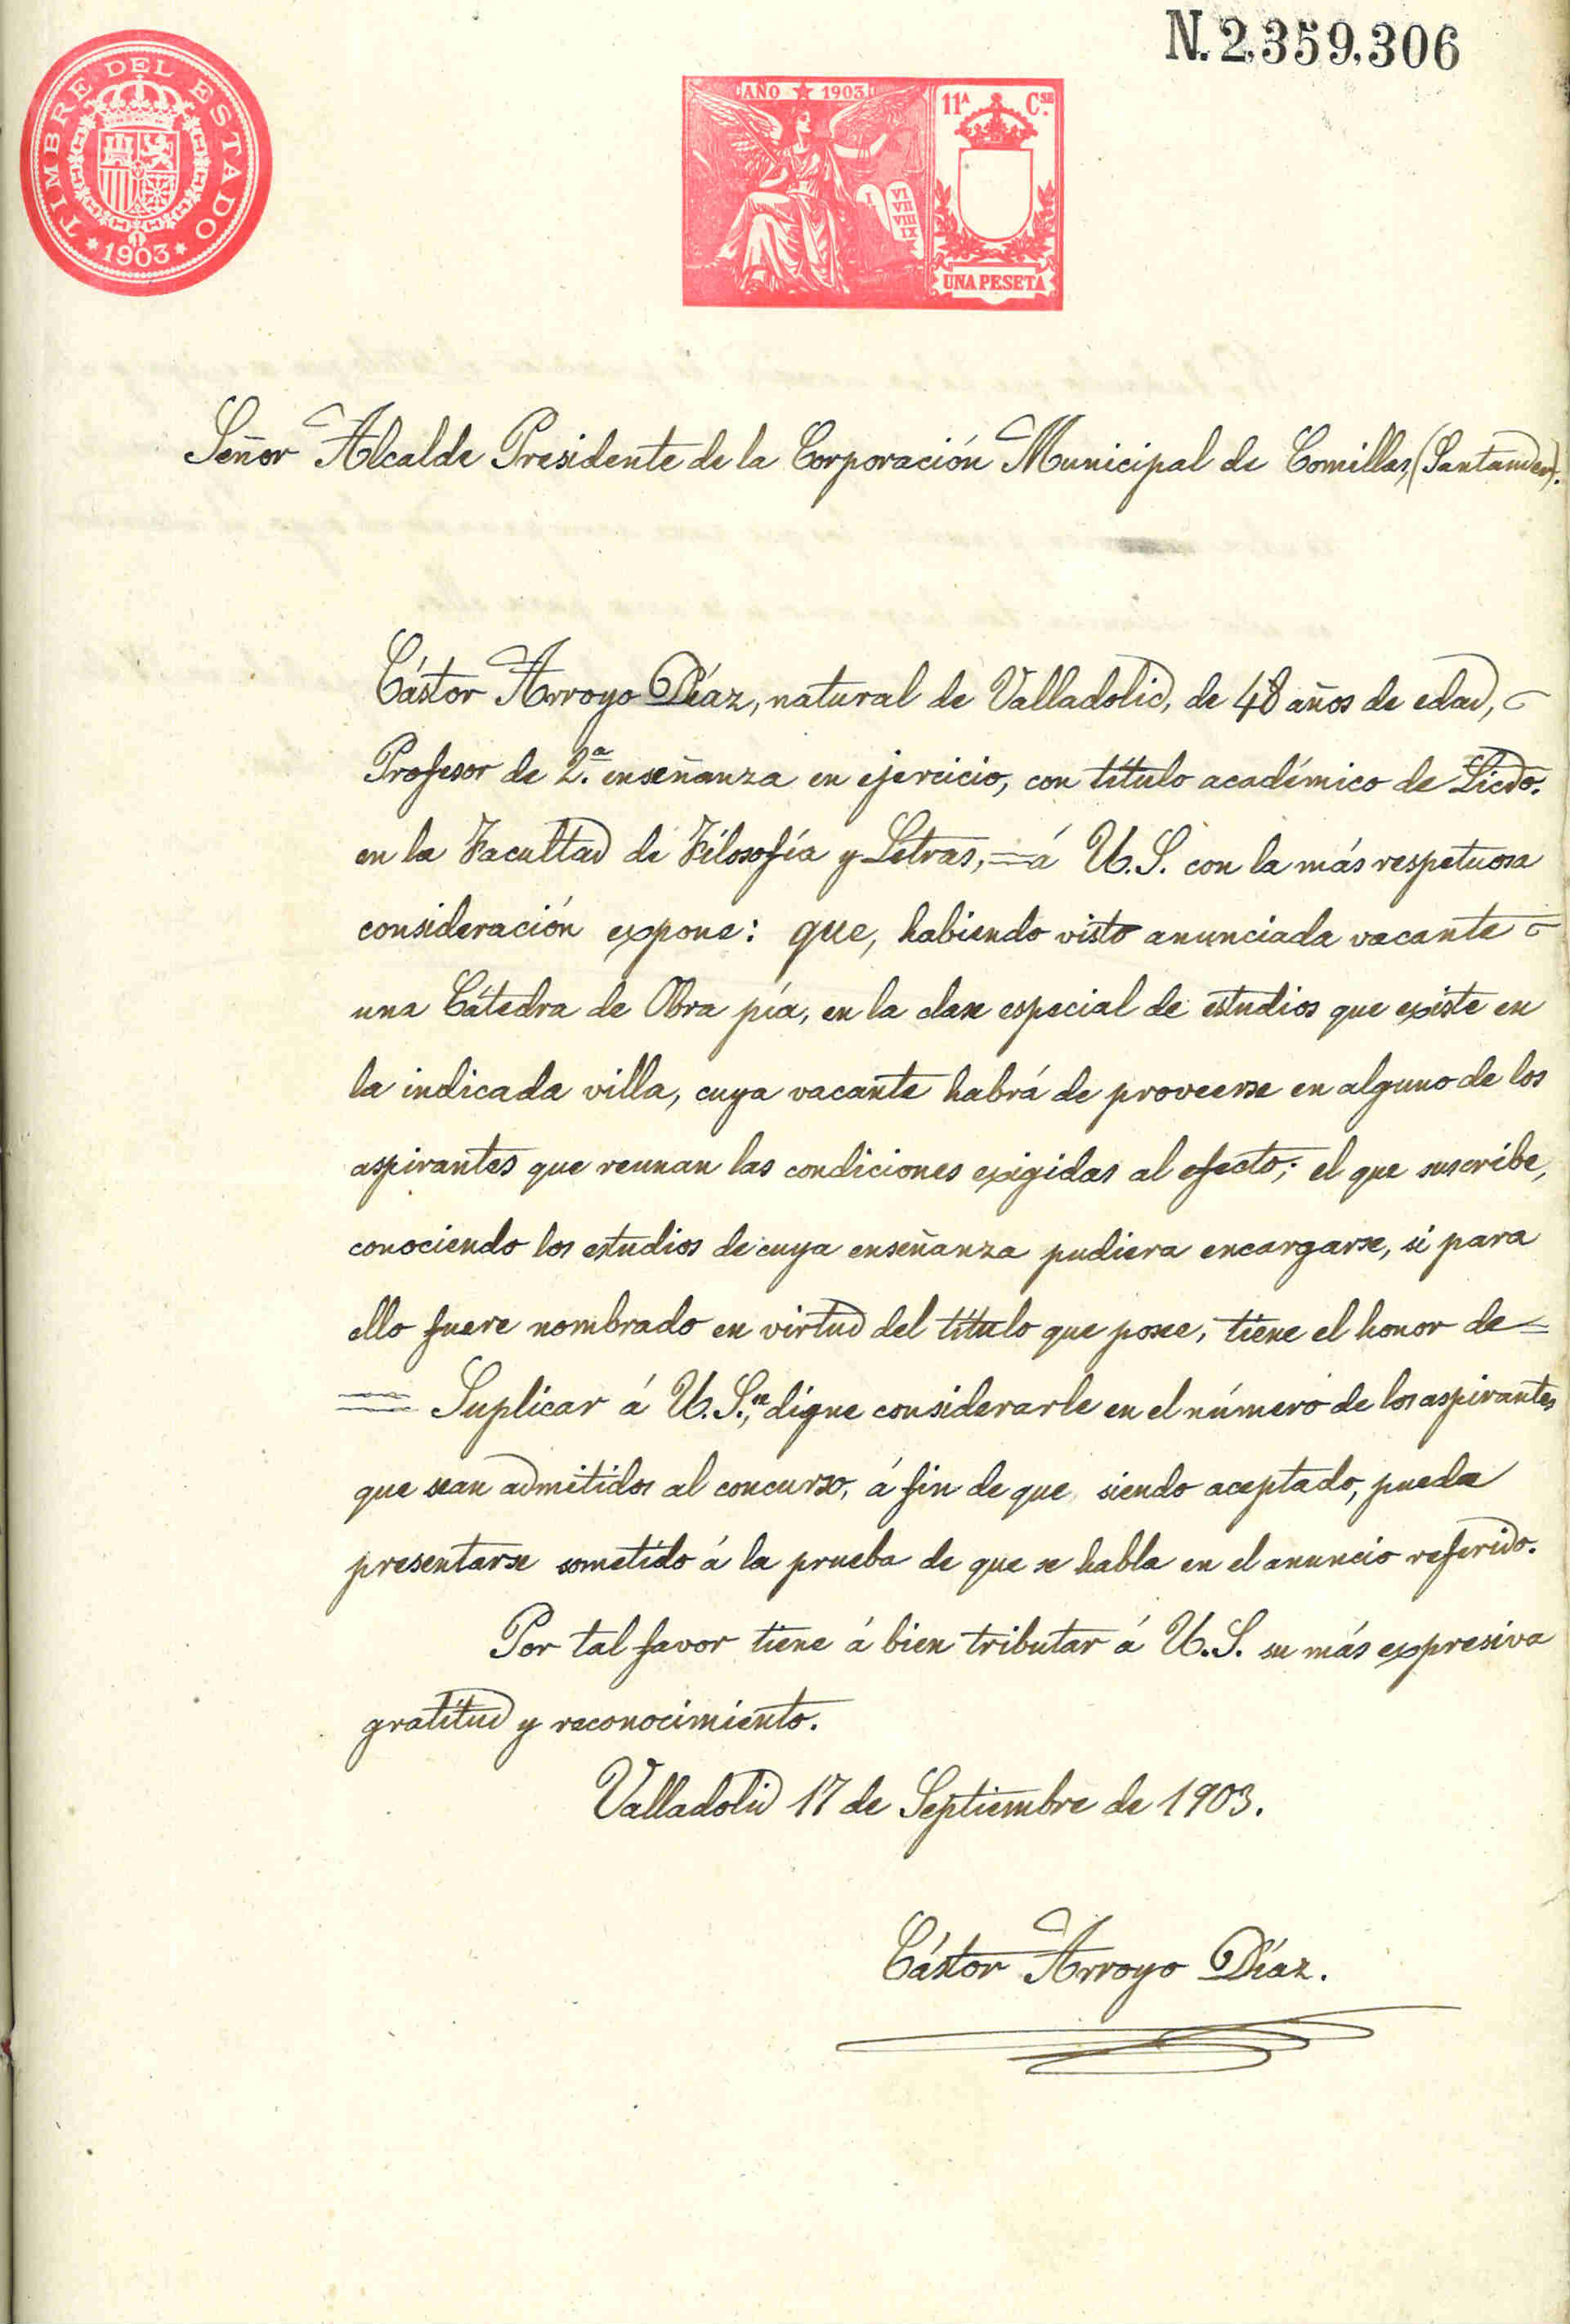 N. 2.359,306
TIMBRE DEL ESTADO
1903
AÑO 1903
11ᴬ Cˢᴱ
I VI
VII
VIII
IX
UNA PESETA
Señor Alcalde Presidente de la Corporación Municipal de Comillas, (Santander).
Cástor Arroyo Díaz, natural de Valladolid, de 48 años de edad,
Profesor de 2.ª enseñanza en ejercicio, con título académico de Licdo.
en la Facultad de Filosofía y Letras, = á U.S. con la más respetuosa
consideración expone: que, habiendo visto anunciada vacante
una Cátedra de Obra pía, en la clase especial de estudios que existe en
la indicada villa, cuya vacante habrá de proveerse en alguno de los
aspirantes que reunan las condiciones exigidas al efecto; el que suscribe,
conociendo los estudios de cuya enseñanza pudiera encargarse, si para
ello fuere nombrado en virtud del título que posee, tiene el honor de =
= Suplicar á U.S., se digne considerarle en el número de los aspirantes
que sean admitidos al concurso, á fin de que siendo aceptado, pueda
presentarse sometido á la prueba de que se habla en el anuncio referido.
Por tal favor tiene á bien tributar á U.S. su más expresiva
gratitud y reconocimiento.
Valladolid 17 de Septiembre de 1903.
Cástor Arroyo Díaz.